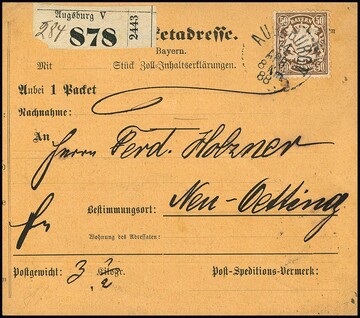 Augsburg V
284 878 2443
etadresse.
Bayern.
50 BAYERN 50
50 50
Mit Stück Zoll-Inhaltserklärungen.
Anbei 1 Packet
Nachnahme:
An
Herrn Ferd. Holzner
Bestimmungsort: Neu-Oetting
Wohnung des Adressaten:
Postgewicht: 3 Kilogr. Post-Speditions-Vermerk: